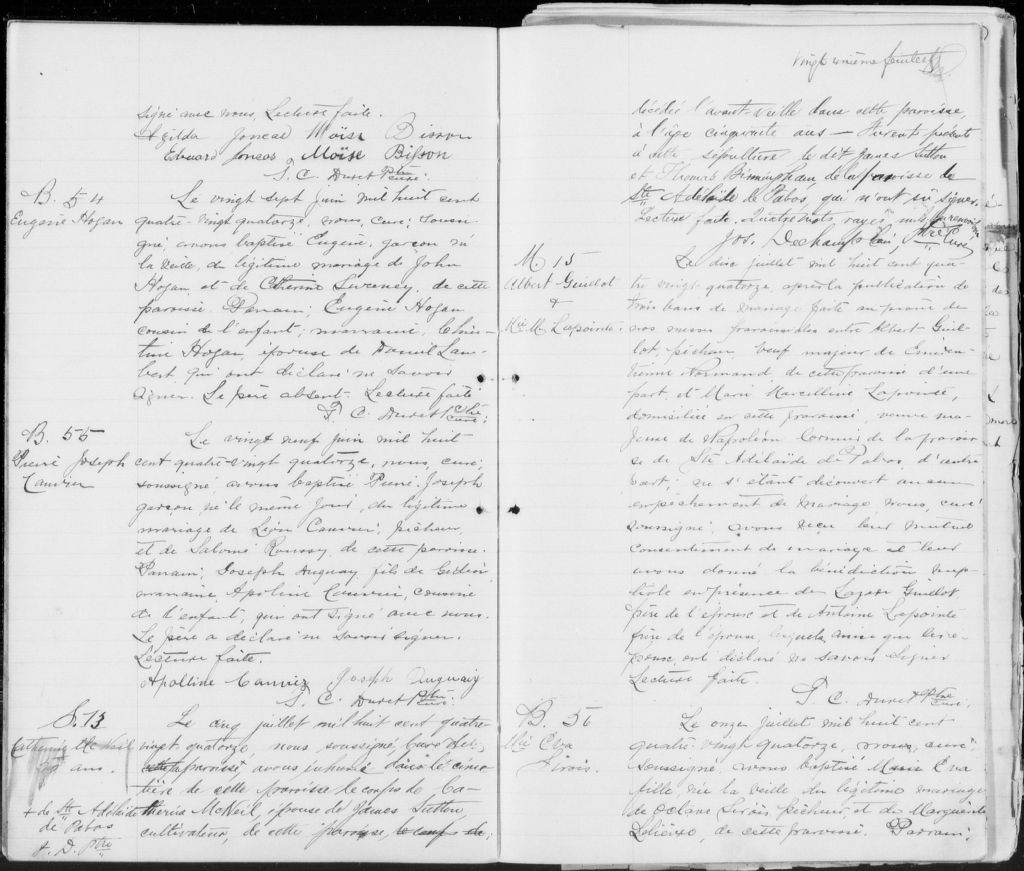 signé avec nous. Lecture faite.
Agilda Joncas Moïse Bisson
Edouard Joncas Moïse Bisson
T. C. Duret Ptre curé.
B. 54
Eugène Hogan
Le vingt sept juin mil huit cent
quatre-vingt quatorze, nous, curé, soussi-
gné, avons baptisé Eugène, garçon né
la veille, du légitime mariage de John
Hogan et de Catherine Sweeney, de cette
paroisse. Parrain; Eugène Hogan
cousin de l'enfant; marraine, Chris-
tine Hogan, épouse de Daniel Lam-
bert qui ont déclaré ne savoir
signer. Le père absent. Lecture faite
T. C. Duret Ptre curé.
B. 55
Pierre Joseph
Cauvier
Le vingt neuf juin mil huit
cent quatre-vingt quatorze, nous, curé,
soussigné, avons baptisé Pierre Joseph
garçon né le même jour, du légitime
mariage de Léon Cauvier, pêcheur,
et de Salomé Roussy, de cette paroisse.
Parrain; Joseph Auguay, fils de Gédéon,
marraine, Apoline Cauvier, cousine
de l'enfant, qui ont signé avec nous.
Le père a déclaré ne savoir signer.
Lecture faite.
Apolline Cauvier Joseph Auguay
T. C. Duret Ptre curé.
S. 13
Catherine McNeil
50 ans.
+ de Ste Adélaïde
de Pabos
J. D. Ptre
Le cinq juillet mil huit cent quatre
vingt quatorze, nous soussigné, curé de +
cette paroisse, avons inhumé dans le cime-
tière de cette paroisse le corps de Ca-
therine McNeil, épouse de James Sutton,
cultivateur, de cette paroisse, le corps de;
Vingt unième feuillet
décédée l'avant-veille dans cette paroisse,
à l'âge cinquante ans — Furent présents
à cette sépulture le dit James Sutton
et Thomas Birmingham, de la paroisse de
Ste Adélaïde de Pabos, qui n'ont su signer.
Lecture faite. Quatre mots rayés nuls, un renvoi
Jos. Dechamplain, Ptre Curé
M 15
Albert Guillot
&
Mie M. Lapointe.
Le dix juillet mil huit cent qua-
tre vingt quatorze, après la publication de
trois bans de mariage faite au prône de
nos messes paroissiales entre Albert Guil-
lot, pêcheur, veuf majeur de
Normand, de cette paroisse d'une
part, et Marie Marcelline Lapointe,
domiciliée en cette paroisse, veuve ma-
jeure de Napoléon Cormier de la parois-
se de Ste Adélaïde de Pabos, d'autre
part; ne s'étant découvert aucun
empêchement de mariage, nous, curé
soussigné, avons reçu leur mutuel
consentement de mariage et leur
avons donné la bénédiction nup-
tiale en présence de Lazare Guillot
père de l'époux et de Antoine Lapointe
frère de l'épouse, lesquels ainsi que les é-
poux ont déclaré ne savoir signer
Lecture faite.
T. C. Duret Ptre curé.
B. 56
Mie Eva
Sirois.
Le onze juillet mil huit cent
quatre-vingt quatorze, nous, curé,
soussigné, avons baptisé Marie Eva
fille née la veille du légitime mariage
de Octave Sirois pêcheur, et de Marguerite
Lelièvre, de cette paroisse. Parrain;